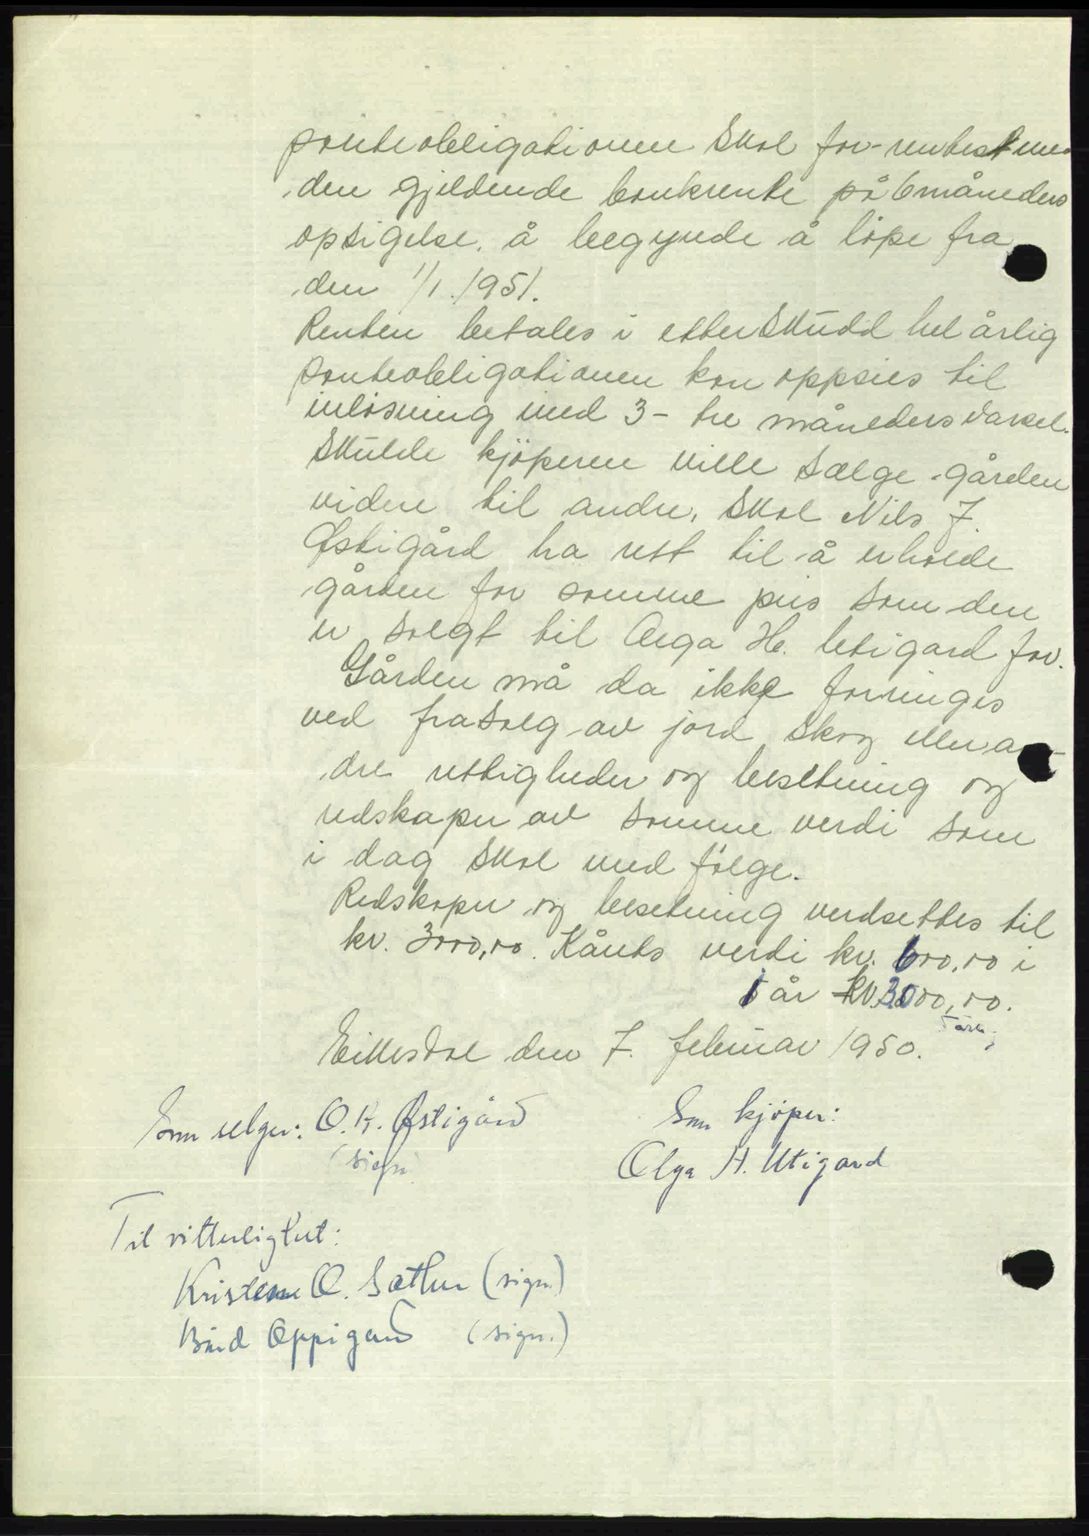 panteobligationen skal for-rentes me-
den gjeldende bankrente på 6 måneders
opsigelse. å begynde å løpe fra
den 1/1 1951.
Renten betales i etterskudd hel årlig
panteobligationen kan oppsies til
inløsning med 3 - tre måneders varsel.
Skulde kjöperen ville sælge gården
videre til andre, skal Nils J.
Østigård ha rett til å erholde
gården for samme pris som den
er solgt til Olga H. Utigard for.
Gården må da ikke forringes
ved frasalg av jord skog eller an-
dre rettigheder og besetning og
redskaper av samme verdi som
i dag skal med følge.
Redskaper og besetning verdsettes til
kr. 3000,00. Kårets verdi kr. 600,00 i
5 år kr. 3000,00.
Eikesdal den 7. februar 1950.
Som selger: O. K. Østigård
(sign)
Som kjöper:
Olga H. Utigard
Til vitterlighet:
Kristian O. Sæther (sign.)
Bård Oppigard (sign.)